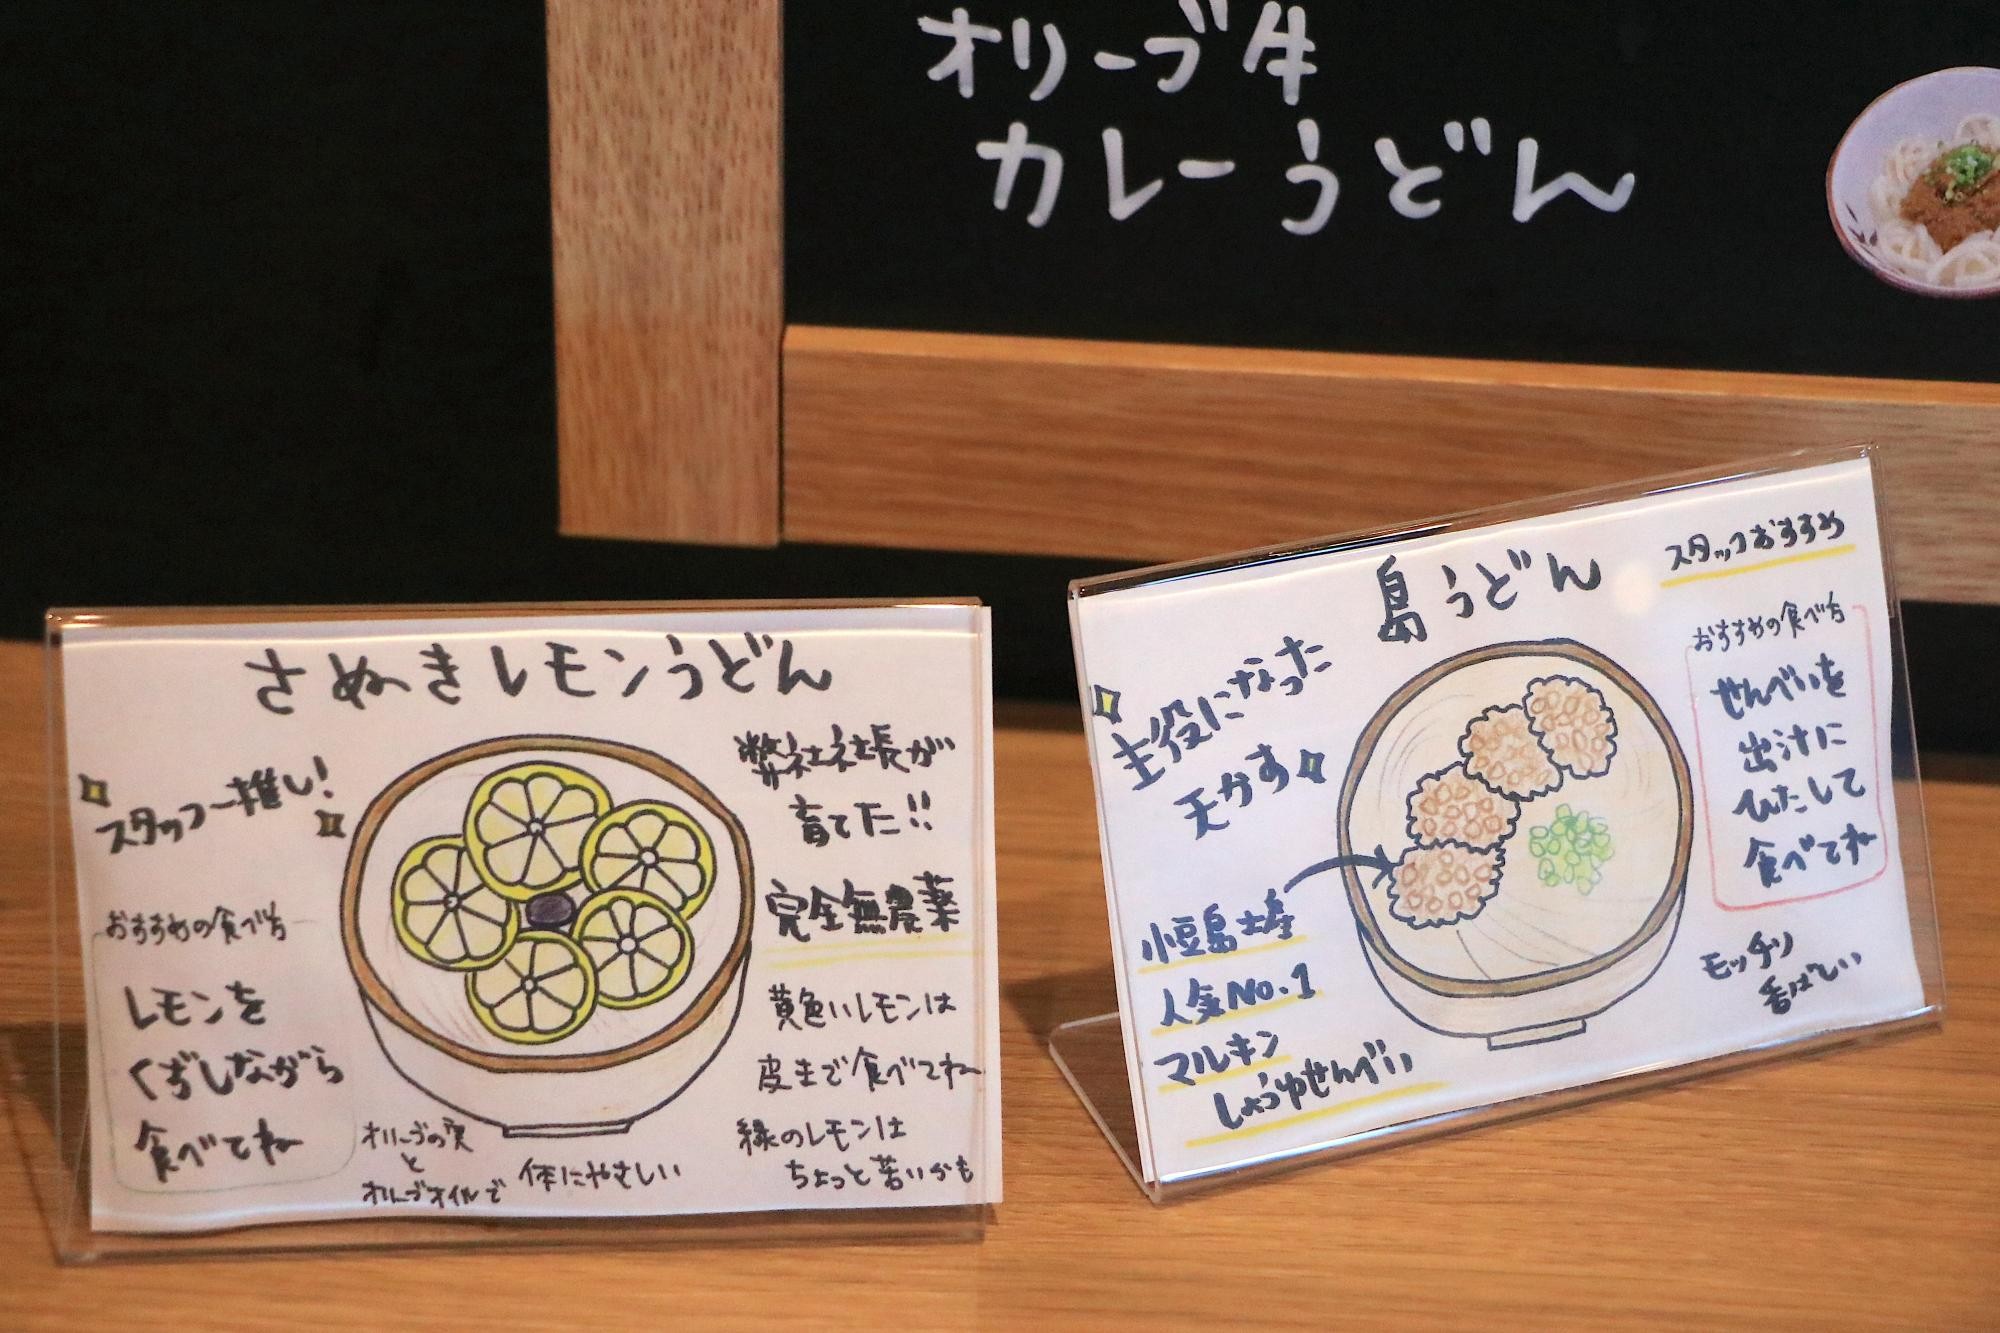 オリーブ牛
カレーうどん
さぬきレモンうどん
スタッフ一推し!
おすすめの食べ方
レモンを
くずしながら
食べてね
弊社社長が
育てた!!
完全無農薬
黄色いレモンは
皮まで食べてね
緑のレモンは
ちょっと苦いかも
オリーブの実
と
オリーブオイルで
体にやさしい
島うどん
スタッフおすすめ
主役になった
天かす
おすすめの食べ方
せんべいを
出汁に
ひたして
食べてね
小豆島土産
人気No.1
マルキン
しょうゆせんべい
モッチリ
香ばしい